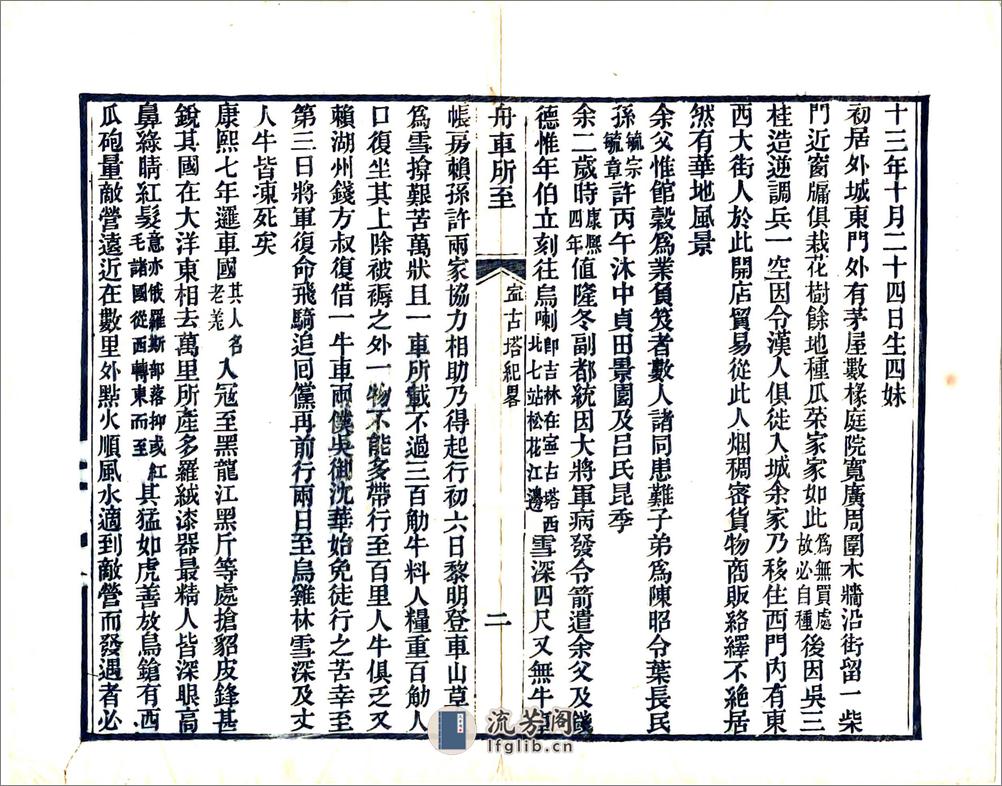 十三年十月二十四日生四妹
初居外城東門外有茅屋數椽庭院寬廣周圍木牆沿街留一柴
門近窗牖俱栽花樹餘地種瓜菜家家如此為無買處故必自種後因吳三
桂造逆調兵一空因令漢人俱徙入城余家乃移住西門內有東
西大街人於此開店貿易從此人烟稠密貨物商販絡繹不絕居
然有華地風景
余父惟館穀爲業負笈者數人諸同患難子弟爲陳昭令葉長民
孫毓宗毓章許丙午沐中貞田景園及呂氏昆季
余二歲時康熙四年值隆冬副都統因大將軍病發令箭遣余父及錢
德惟年伯立刻往烏喇即吉林在寧古塔西北七站松花江邊雪深四尺又無牛車
舟車所至
寧古塔紀畧
二
帳房賴孫許兩家協力相助乃得起行初六日黎明登車山草
爲雪揜艱苦萬狀且一車所載不過三百觔牛料人糧重百觔人
口復坐其上除被褥之外一物不能多帶行至百里人牛俱乏又
賴湖州錢方叔復借一牛車兩僕吳御沈華始免徒行之苦幸至
第三日將軍復命飛騎追回儻再前行兩日至烏雞林雪深及丈
人牛皆凍死矣
康熙七年邏車國其人名老羌入冦至黑龍江黑斤等處搶貂皮鋒甚
銳其國在大洋東相去萬里所產多羅絨漆器最精人皆深眼高
鼻綠睛紅髮意亦俄羅斯部落抑或紅毛諸國從西轉東而至其猛如虎善放鳥鎗有西
瓜砲量敵營遠近在數里外點火順風水適到敵營而發遇者必
流芳阁
lfglib.cn